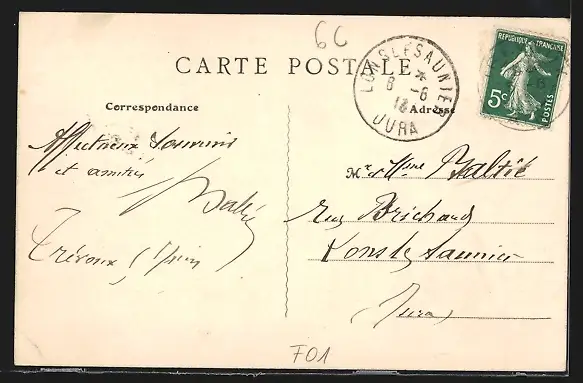 6C
CARTE POSTALE
LONS-LE-SAUNIER
8 -6
JURA
REPUBLIQUE FRANÇAISE
5c
POSTES
Correspondance
Adresse
Affectueux Souvenirs
et amitiés
Trévoux, Juin
Mr et Mme
Rue Brichaud
Lons le Saunier
Jura
F01